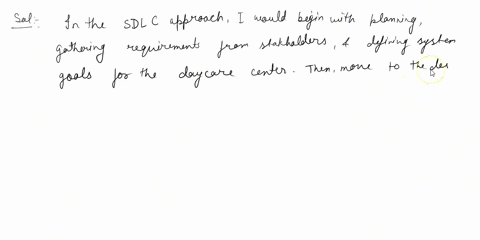 Sol:- In the SDLC approach, I would begin with planning,
gathering requirements from stakholders, & defining system
goals for the daycare center. Then, move to the des